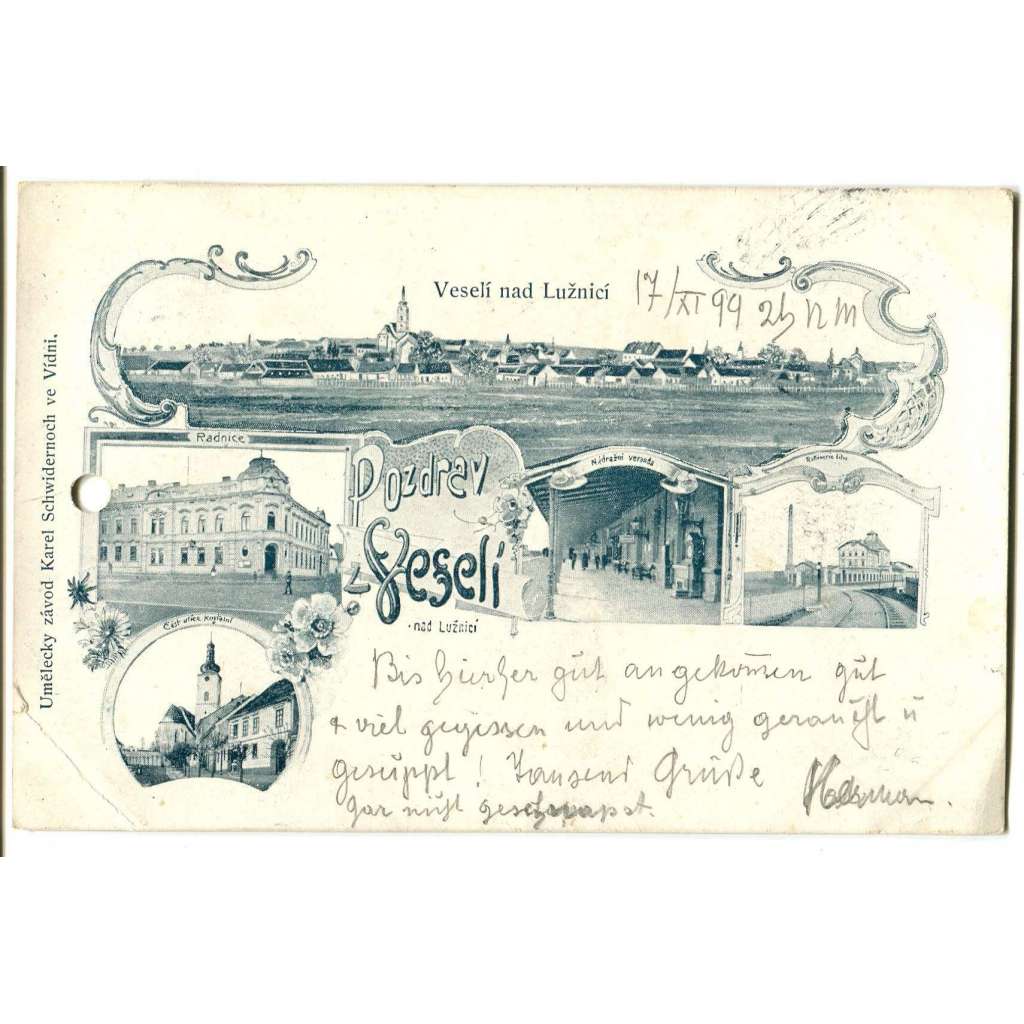 Veselí nad Lužnicí
17/XI 99 2h N M
Radnice
Pozdrav
z Veselí
nad Lužnicí
Nádražní veranda
Rafinerie lihu
Část ulice Kostelní
Umělecky závod Karel Schwidernoch ve Vídni.
Bis hierher gut angekom̄en gut
+ viel gegessen und wenig geraucht u
gesuppt! Tausend Grüße
gar nicht geschnapst.
Herman.